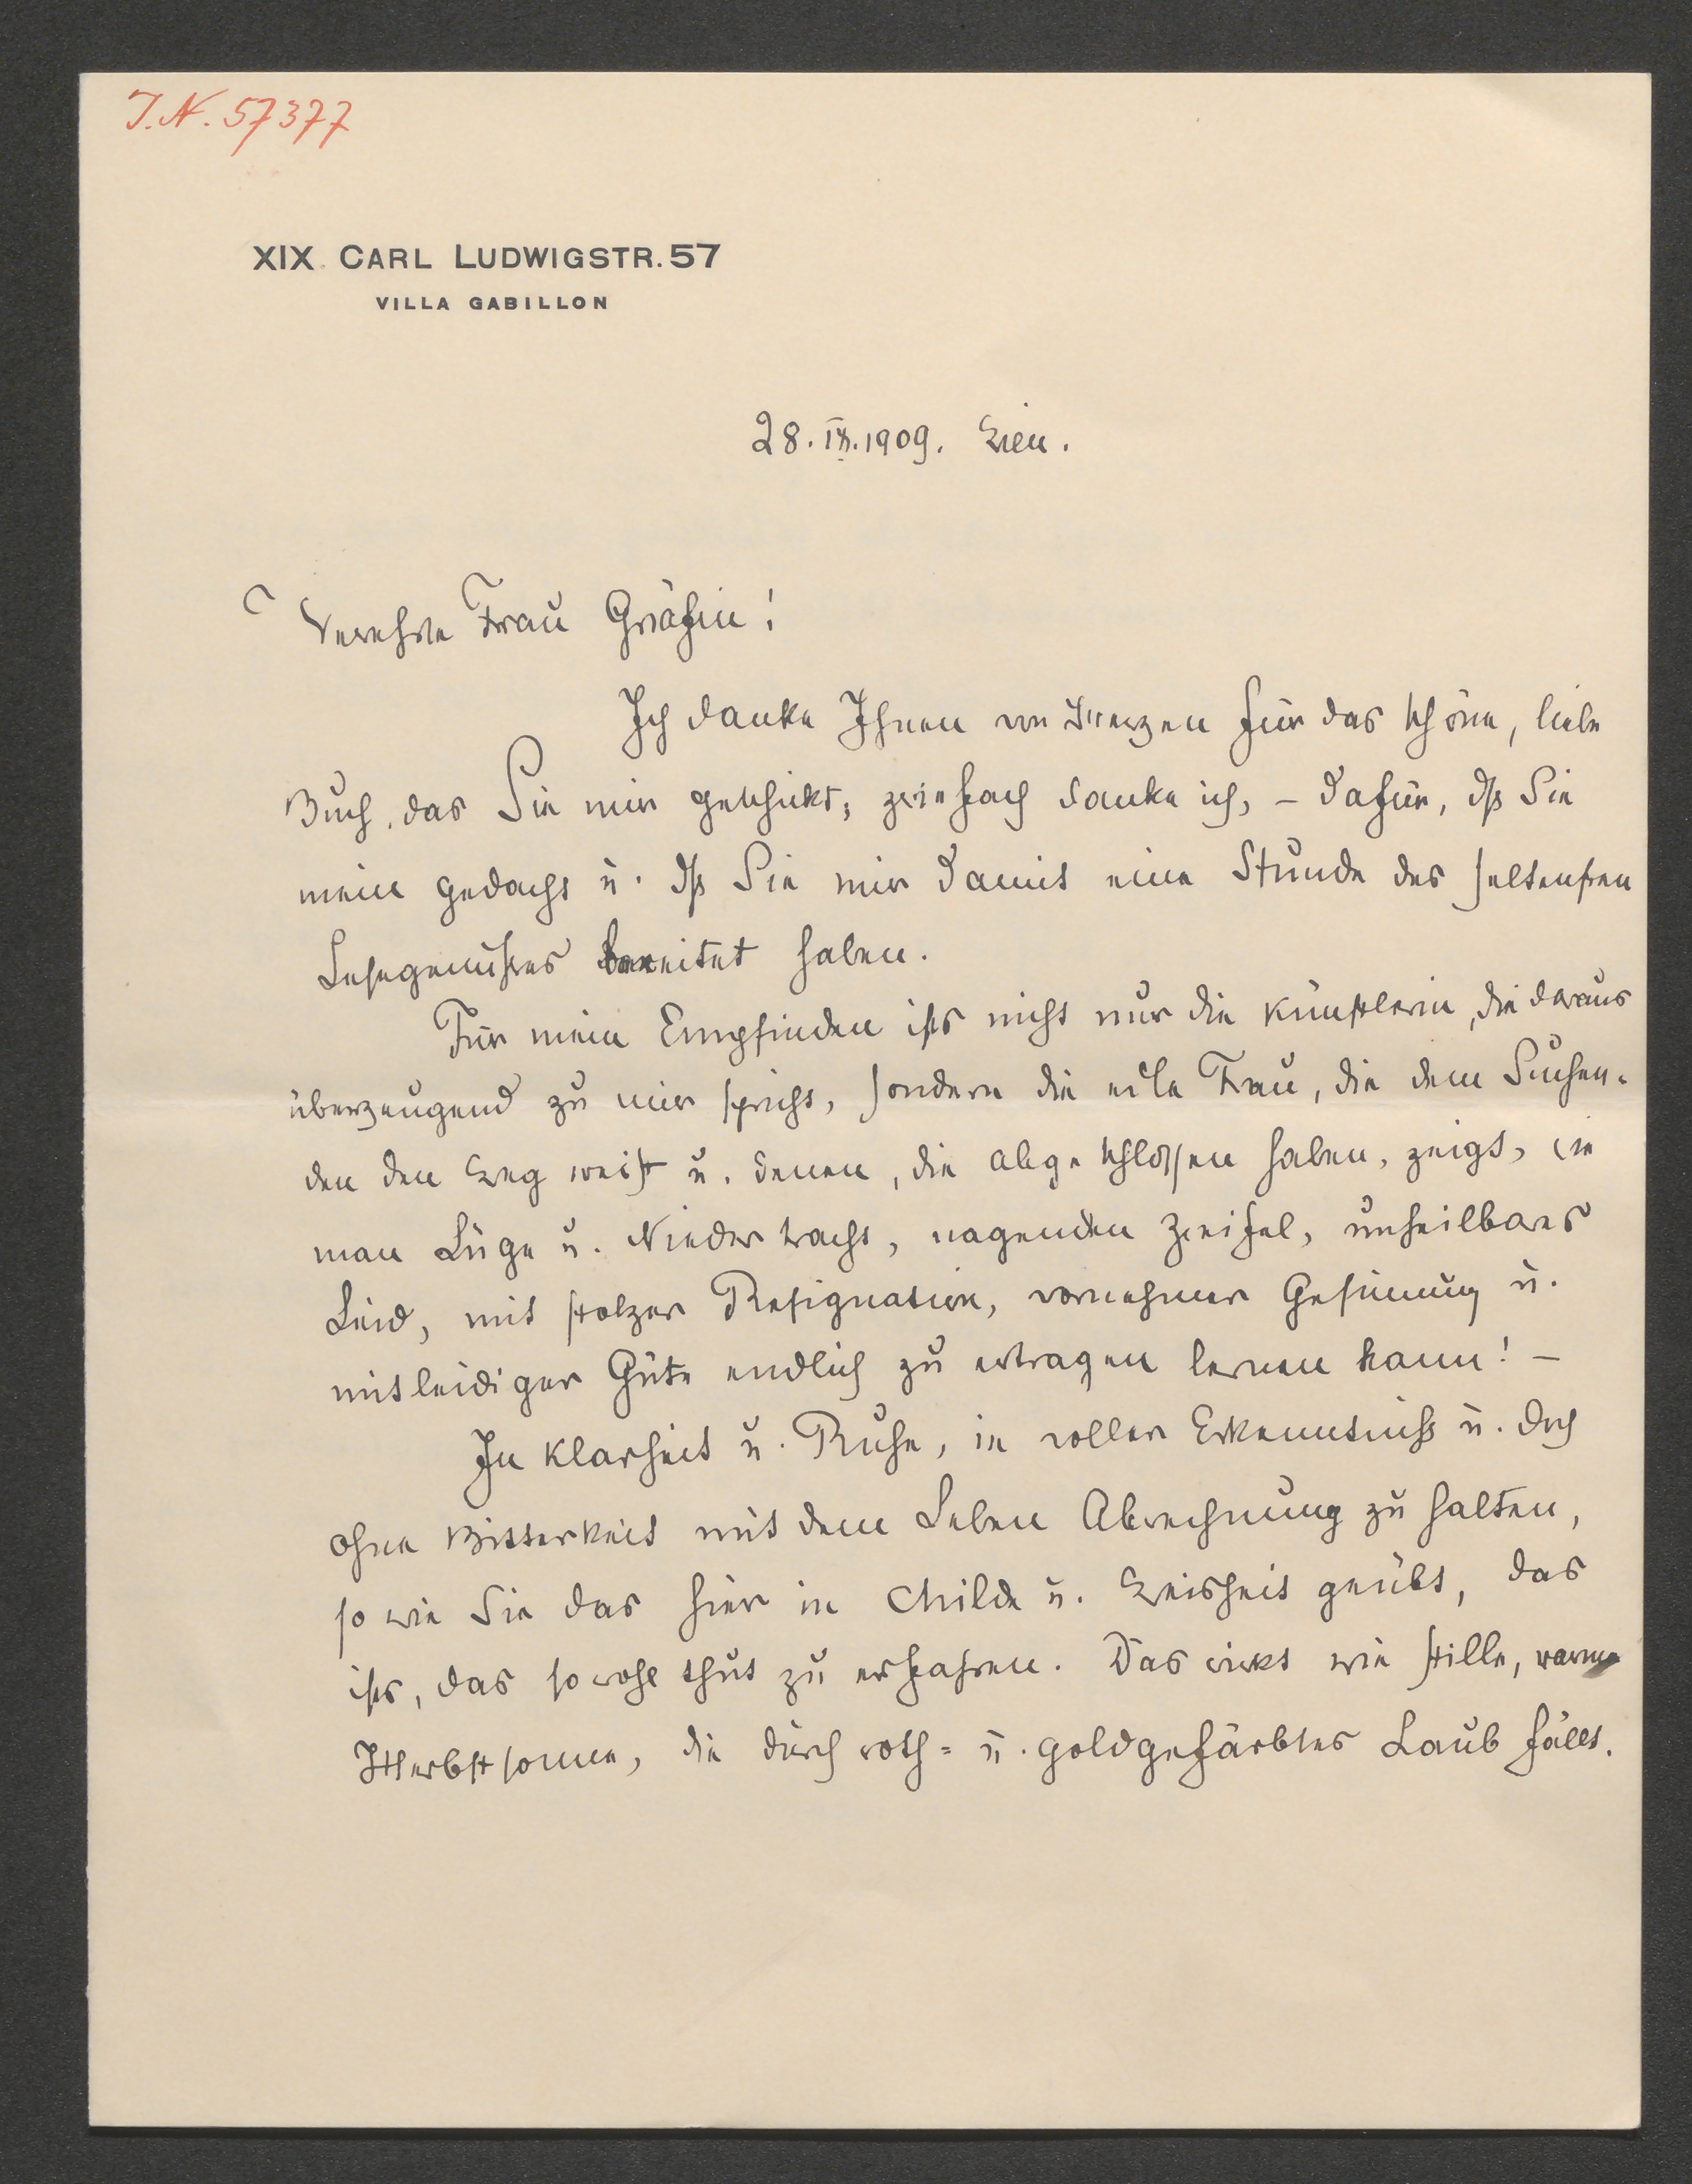 I.N. 57377
XIX. CARL LUDWIGSTR. 57
VILLA GABILLON
28. IX. 1909. Wien.
Verehrte Frau Gräfin!
Ich danke Ihnen von Herzen für das schöne, liebe
Buch, das Sie mir geschickt; zweifach danke ich, – dafür, dß Sie
mein gedacht u. dß Sie mir damit eine Stunde des seltensten
Lesegenußes bereitet haben.
Für mein Empfinden ists nicht nur die Künstlerin, die daraus
überzeugend zu mir spricht, sondern die edle Frau, die dem Suchen-
den den Weg weist u. denen, die abgeschlossen haben, zeigt, wie
man Lüge u. Niedertracht, nagenden Zweifel, unheilbares
Leid, mit stolzer Resignation, vornehmer Gesinnung u.
mitleidiger Güte endlich zu ertragen lernen kann! –
In Klarheit u. Ruhe, in voller Erkenntniß u. doch
ohne Bitterkeit mit dem Leben Abrechnung zu halten,
so wie Sie das hier in Milde u. Weisheit geübt, das
ists, das so wohl thut zu erfahren. Das wirkt wie stille, warme
Herbstsonne, die durch roth- u. goldgefärbtes Laub fällt.